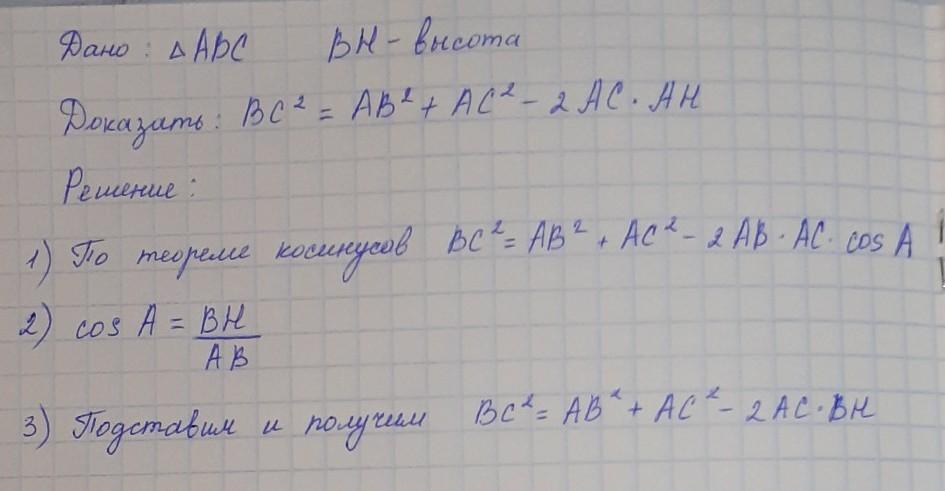 Дано: △ABC BH - высота
Доказать: BC² = AB² + AC² - 2 AC · AH
Решение:
1) По теореме косинусов BC² = AB² + AC² - 2 AB · AC · cos A
2) cos A = BH/AB
3) Подставим и получим BC² = AB² + AC² - 2 AC · BH